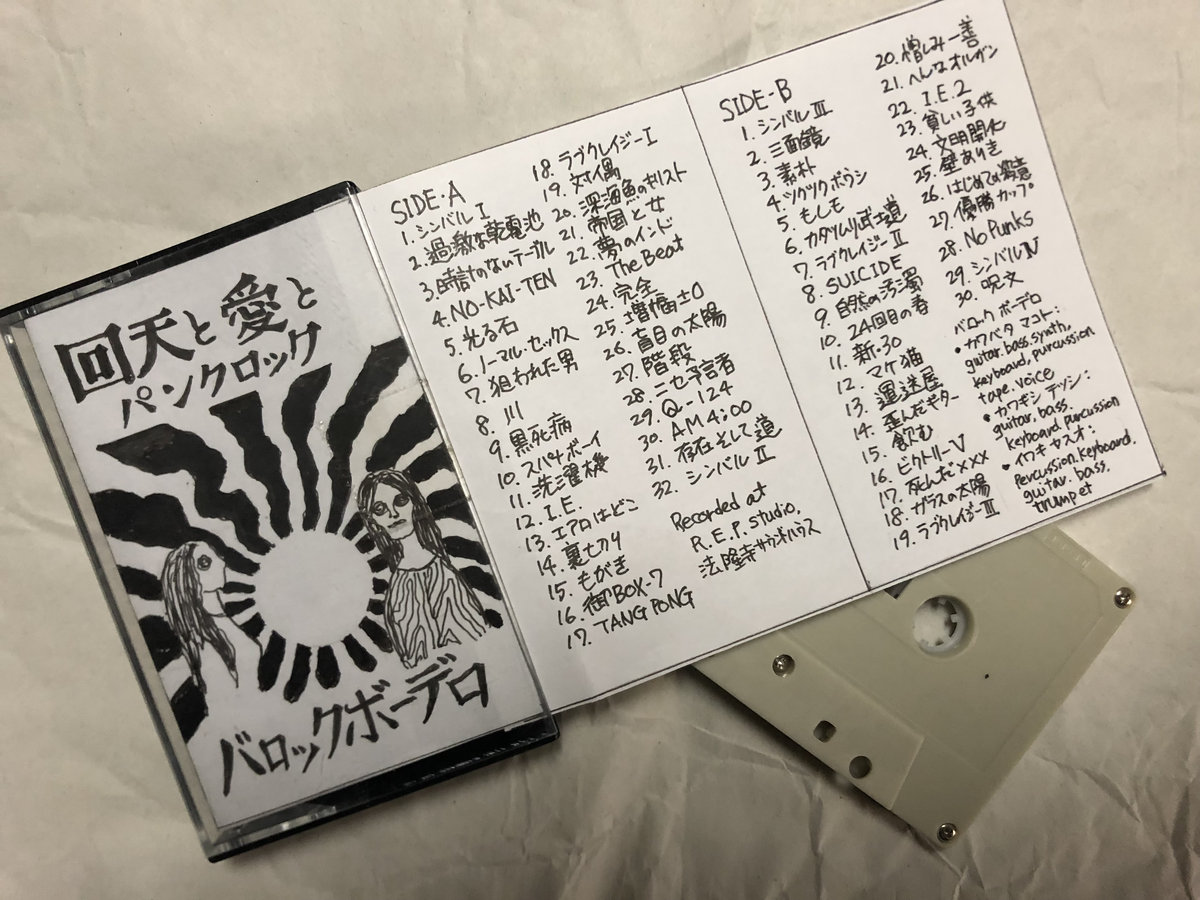 回天と愛と
パンクロック
バロックボーデロ
SIDE-A
1. シンバル I
2. 過激な乾電池
3. 時計のないテーブル
4. NO-KAI-TEN
5. 光る石
6. ノーマル・セックス
7. 狙われた男
8. 川
9. 黒死病
10. スパナボーイ
11. 洗濯機
12. I.E.
13. エアロはどこ
14. 裏七刀り
15. もがき
16. 御BOX-7
17. TANG PONG
18. ラブクレイジーI
19. 対偶
20. 深海魚のキリスト
21. 帝国と女
22. 夢のインド
23. The Beat
24. 完全
25. 増幅±0
26. 盲目の太陽
27. 階段
28. ニセ予言者
29. Q-124
30. AM4:00
31. 存在そして道
32. シンバル II
Recorded at
R.E.P. studio,
法隆寺サウンドハウス
SIDE-B
1. シンバル III
2. 三面鏡
3. 素朴
4. ツクツクボウシ
5. もしも
6. カタツムリ武士道
7. ラブクレイジーII
8. SUICIDE
9. 自然の汚濁
10. 24回目の春
11. 新・30
12. マケ猫
13. 運送屋
14. 歪んだギター
15. 飲む
16. ビクトリーV
17. 死んだ×××
18. ガラスの太陽
19. ラブクレイジーIII
20. 憎しみ一善
21. へんなオルガン
22. I.E.2
23. 貧しい子供
24. 文明開化
25. 壁ありき
26. はじめての
27. 優勝カップ
28. No Punks
29. シンバルIV
30. 呪文
バロックボーデロ
・カワバタマコト:
guitar.bass.synth,
keyboard, purcussion
tape.voice
・カワギシテツシ:
guitar.bass
keyboard purcussion
・イワキヤスオ:
Percussion.keyboard.
guitar.bass.
trumpet